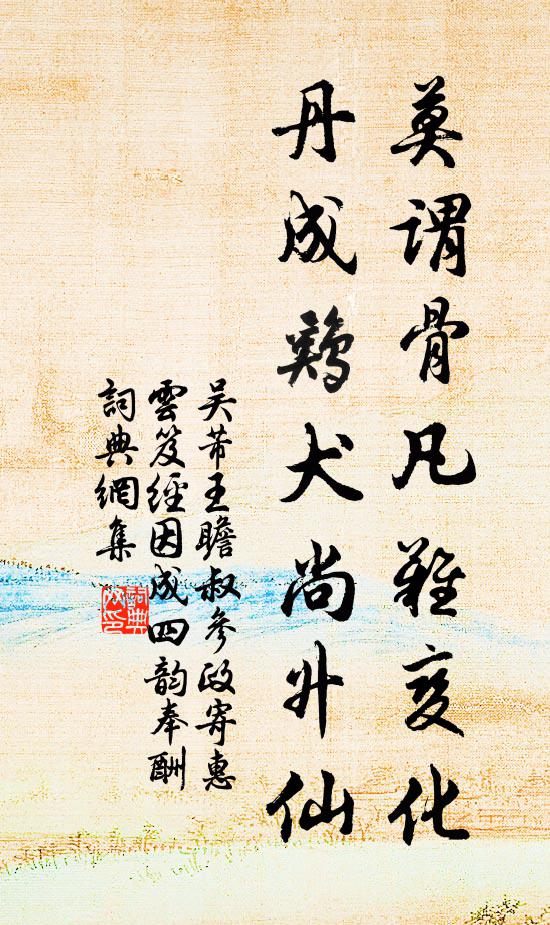 莫谓骨凡難变化
丹成鷄犬尚升仙
吴芾王瞻叔参政寄惠
雲笈經因成四韵奉酬
詞典網集